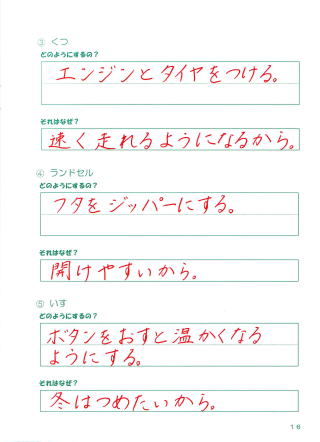 ③ くつ
どのようにするの？
エンジンとタイヤをつける。
それはなぜ？
速く走れるようになるから。
④ ランドセル
どのようにするの？
フタをジッパーにする。
それはなぜ？
開けやすいから。
⑤ いす
どのようにするの？
ボタンをおすと温かくなる
ようにする。
それはなぜ？
冬はつめたいから。
16